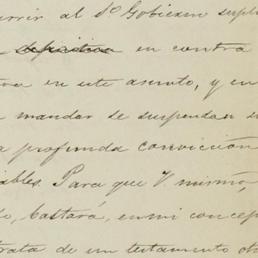 urrir al So Gobierno supli
definitiva en contra
tra en este asunto, y en
mandar se suspendan
a profunda convicción
iables. Para que V misma,
do, bastará, en mi concep
trata de un testamento